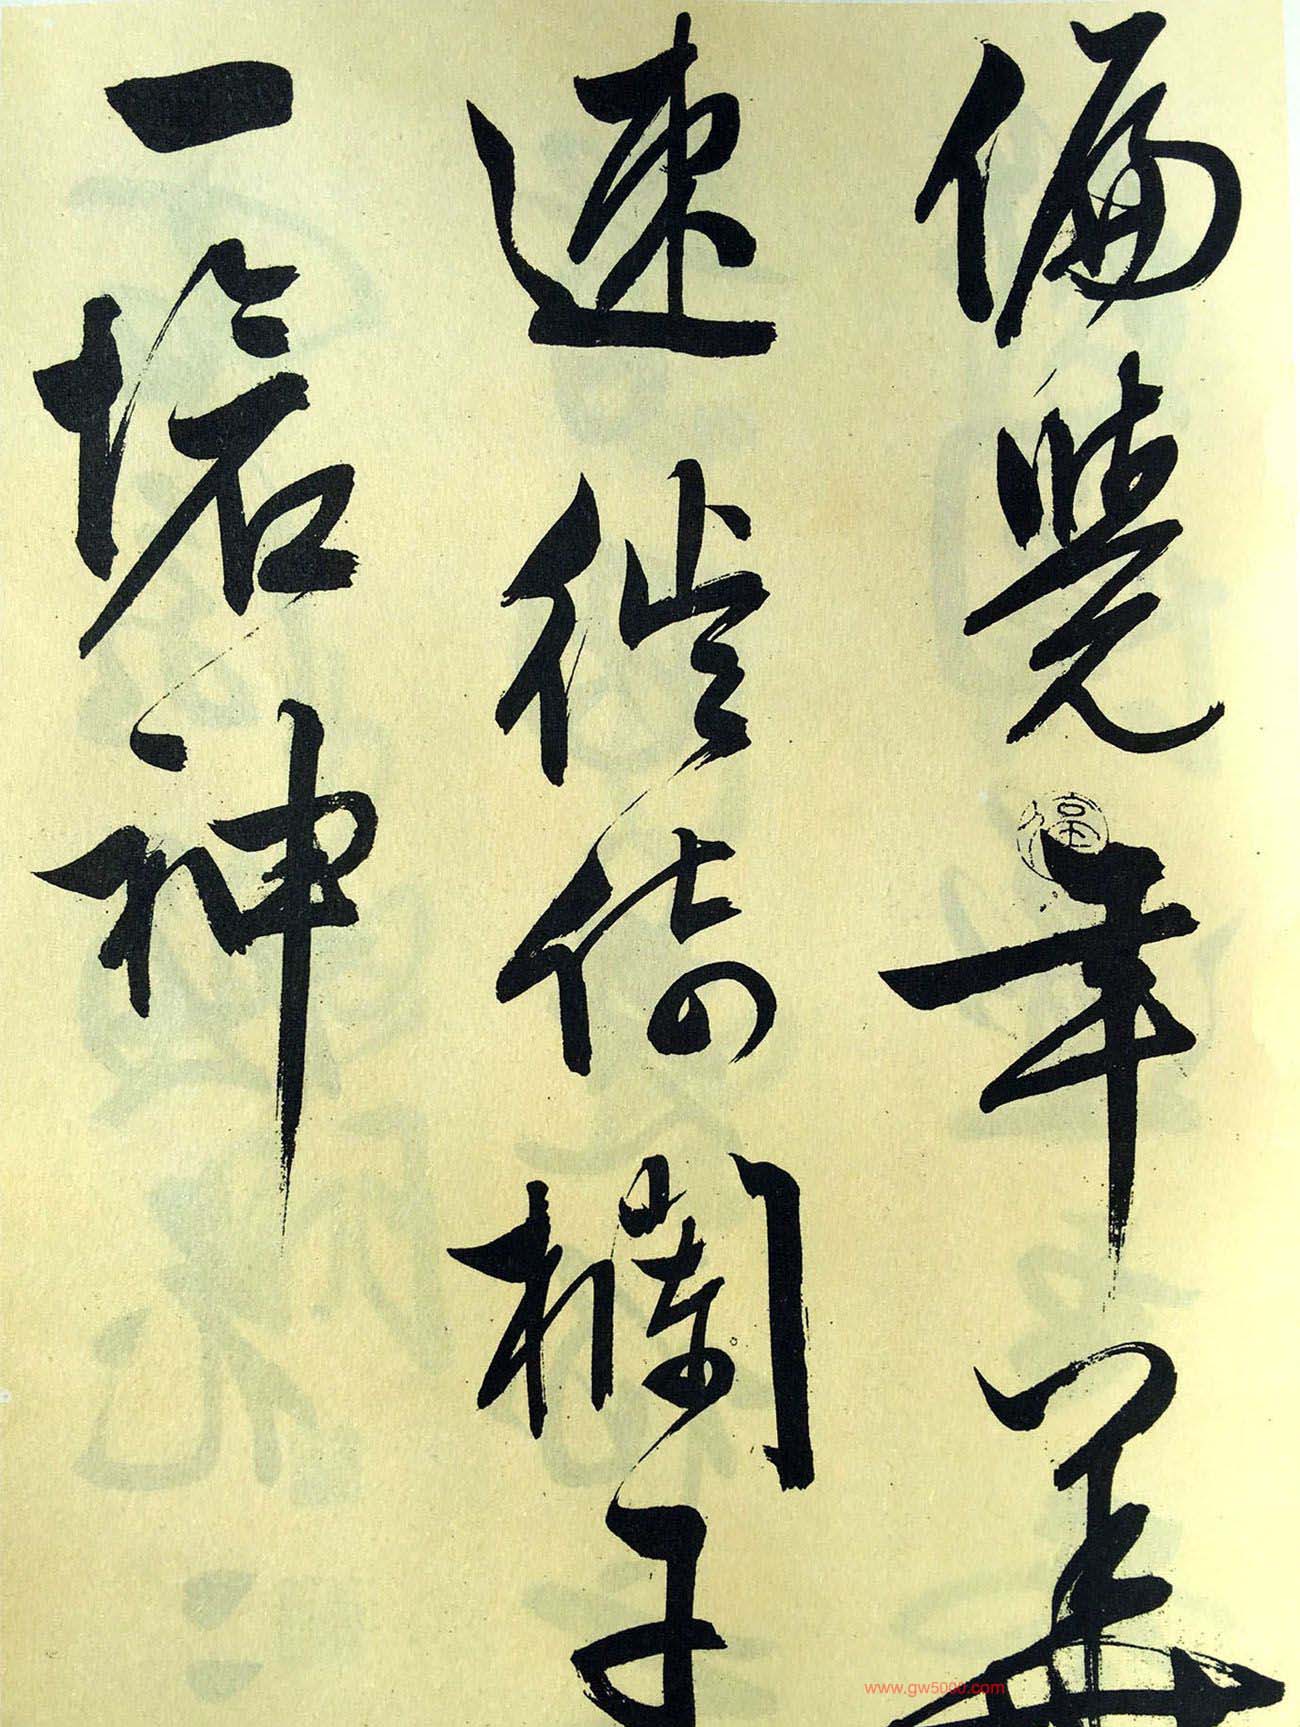 偏覺年華
速徙倚欄干
一愴神
www.gw5000.com